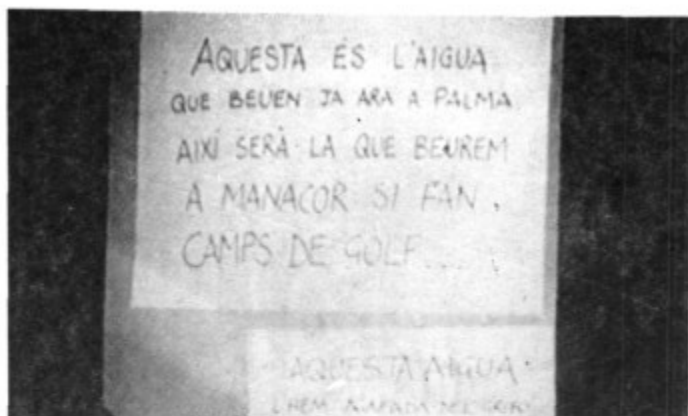 AQUESTA ÉS L'AIGUA
QUE BEUEN JA ARA A PALMA.
AIXÍ SERÀ LA QUE BEUREM
A MANACOR SI FAN
CAMPS DE GOLF...
AQUESTA AIGUA
L'HEM AGAFADA DEL